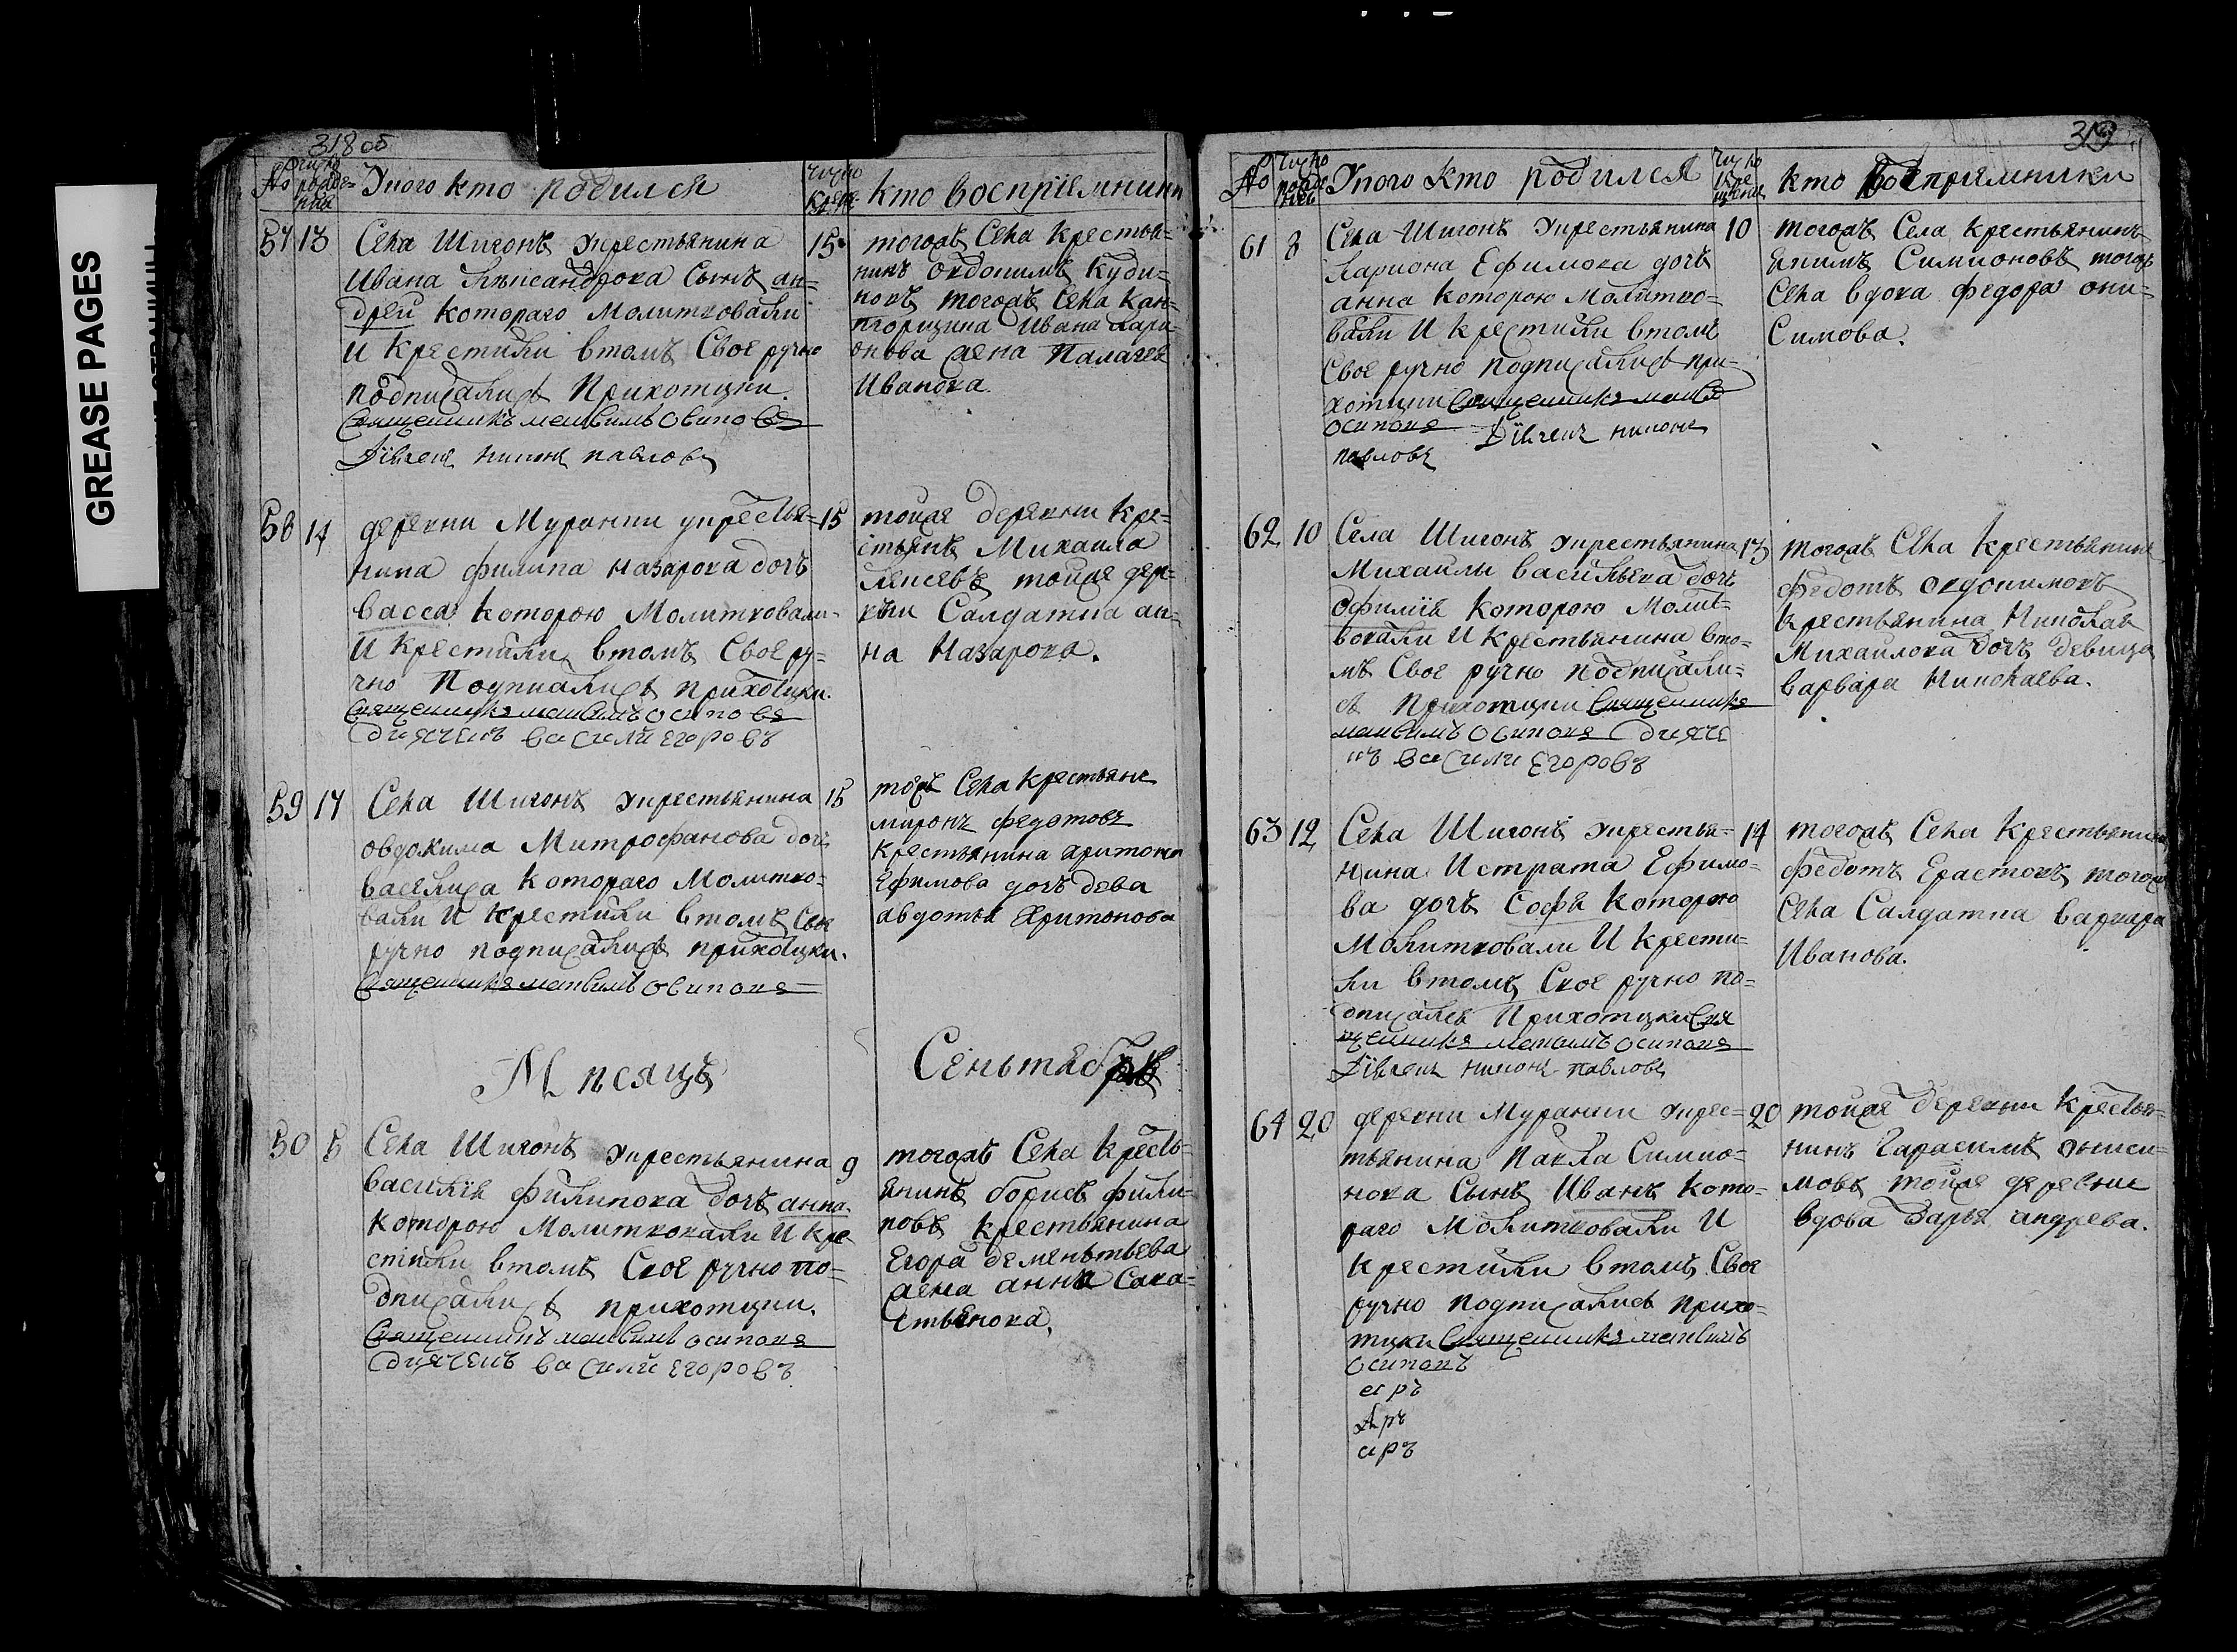 GREASE PAGES
318 об
№
число рожде-
ния
У кого кто родился
число
креще-
кто восприемники
57
13
Села Шигонъ укрестьянина
Ивана Александрова Сынъ ан-
дреи котораго Молитвовали
И крестили втомъ Свое ручно
подписались Прихотцки.
Священникъ максимъ Осиповъ
Дїячекъ никонъ павловъ
15
тогожъ Села крестья-
нинъ овдокимъ Куди-
новъ тогожъ Села кан-
торщина Ивана Лари-
онова жена Палагея
Иванова
58
14
деревни Муранки укрестья-
нина филипа назарова дочь
васса которою Молитвовали
И крестили втомъ Свое ру-
чно Подписались прихотцки.
Священникъ максимъ осиповъ
дияченъ васили егоровъ
15
тойже деревни Кре-
стьянъ Михаила
Алексевъ тойже дер-
вни Салдатка ан-
на Назарова.
59
17
Села Шигонъ укрестьянина
овдокима Митрофанова дочь
василиса котораго Молитво-
вали И крестили втомъ Свое
ручно подписались прихотцки.
Священникъ максимъ Осиповъ
15
тожъ Села крестьяне
миронъ федотовъ
крестьянина харитона
Ефимова дочь дева
авдотья Харитонова
Мѣсяцъ
Сеньтябрь
50
5
Села Шигонъ укрестьянина
василия филипова дочь анна
которою Молитвовали И кре
стили втомъ Свое ручно по-
дписались прихотцки.
Священникъ максимъ осиповъ
дияченъ васили егоровъ
9
тогожъ Села кресть-
янинъ борисъ фили-
повъ крестьянина
Егора деменьтьева
жена анна Сава-
стьянова.
319
№
число
рожде
ния
У кого кто родился
число
кре
щения
кто восприемники
61
8
Села Шигонъ укрестьянина
Лариона Ефимова дочь
анна которою Молитво-
вали И крестили втомъ
Свое ручно подписались при-
хотцки Священникъ максимъ
осиповъ Дїячекъ никонъ
павловъ
10
тогожъ Села крестьянинъ
Екимъ Симионовъ тогожъ
Села вдова федора они-
Симова.
62
10
Села Шигонъ укрестьянина
Михаилы васильева дочь
Офимїя которою Молит-
вовали И крестьянина вто-
мъ Свое ручно подписали-
сь Прихотцки Священникъ
максимъ Осиповъ дияче
нъ васили Егоровъ
13
тогожъ Села крестьянинъ
федотъ овдокимовъ
крестьянина Николая
Михаилова дочь девица
варвара Николаева.
63
12
Села Шигонъ укрестья-
нина Истрата Ефимо-
ва дочь Софья которою
Молитвовали И крести-
ли втомъ Свое ручно по-
дписались Прихотцки Свя
щенникъ максимъ осиповъ
Дїячекъ никонъ павловъ
14
тогожъ Села крестьянинъ
федотъ Ерастовъ тогожъ
Села Салдатка варвара
Иванова.
64
20
деревни Муранки укрес-
тьянина Павла Симио-
нова Сынъ Иванъ кото-
раго Молитвовали И
крестили втомъ Свое
ручно подписались прихо-
тцки Священникъ максимъ
Осиповъ
20
тойже деревни крестья-
нинъ Гарасимъ ониси-
мовъ тойже деревни
вдова Дарья андрева.